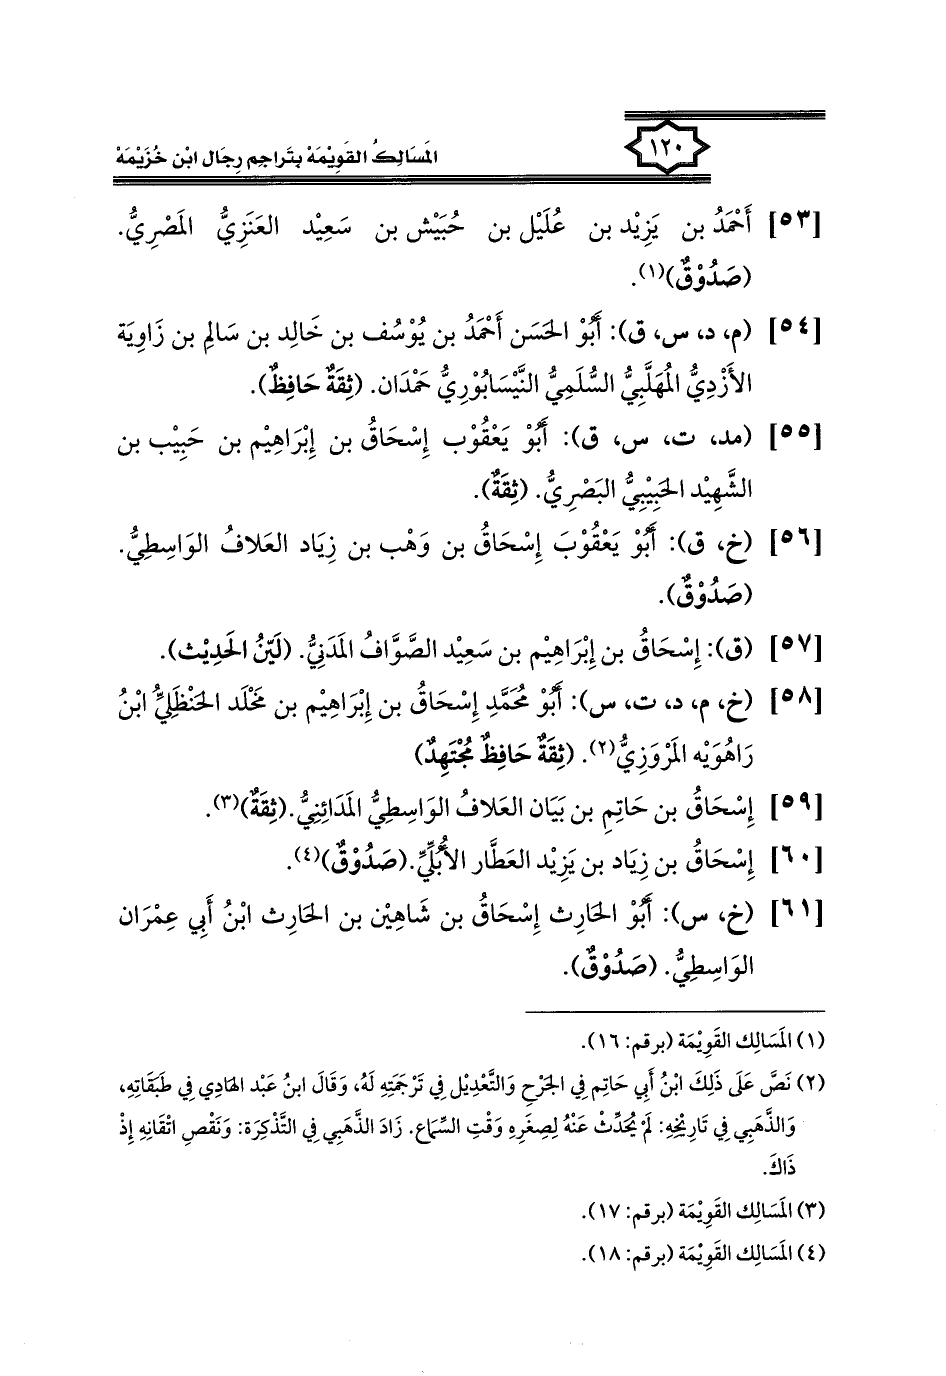 ١٢٠
المَسَالِكُ القَوِيْمَة بِتَراجِم رِجَال ابْن خُزَيْمَة
[٥٣] أَحْمَدُ بن يَزِيْد بن عُلَيْل بن حُبَيْش بن سَعِيْد العَنَزِيُّ المَصْرِيُّ.
(صَدُوْقٌ)(١).
[٥٤] (م، د، س، ق): أَبُوْ الحَسَن أَحْمَدُ بن يُوْسُف بن خَالِد بن سَالِم بن زَاوِيَة
الأَزْدِيُّ المُهَلَّبِيُّ السُّلَمِيُّ النَّيْسَابُوْرِيُّ حَمْدَان. (ثِقَةٌ حَافِظٌ).
[٥٥] (مد، ت، س، ق): أَبُوْ يَعْقُوْب إِسْحَاقُ بن إِبْرَاهِيْم بن حَبِيْب بن
الشَّهِيْد الحَبِيْبِيُّ البَصْرِيُّ. (ثِقَةٌ).
[٥٦] (خ، ق): أَبُوْ يَعْقُوْبَ إِسْحَاقُ بن وَهْب بن زِيَاد العَلافُ الوَاسِطِيُّ.
(صَدُوْقٌ).
[٥٧] (ق): إِسْحَاقُ بن إِبْرَاهِيْم بن سَعِيْد الصَّوَّافُ المَدَنِيُّ. (لَيِّنُ الحَدِيْث).
[٥٨] (خ، م، د، ت، س): أَبُوْ مُحَمَّد إِسْحَاقُ بن إِبْرَاهِيْم بن مَخْلَد الحَنْظَلِيُّ ابْنُ
رَاهُوَيْه المَرْوَزِيُّ(٢). (ثِقَةٌ حَافِظٌ مُجْتَهِدٌ)
[٥٩] إِسْحَاقُ بن حَاتِم بن بَيَان العَلافُ الوَاسِطِيُّ المَدَائِنِيُّ.(ثِقَةٌ)(٣).
[٦٠] إِسْحَاقُ بن زِيَاد بن يَزِيْد العَطَّار الأُبُلِّيُّ.(صَدُوْقٌ)(٤).
[٦١] (خ، س): أَبُوْ الحَارِث إِسْحَاقُ بن شَاهِيْن بن الحَارِث ابْنُ أَبِي عِمْرَان
الوَاسِطِيُّ. (صَدُوْقٌ).
(١) المَسَالِك القَوِيْمَة (برقم: ١٦).
(٢) نَصَّ عَلَى ذَلِكَ ابْنُ أَبِي حَاتِم فِي الجَرْحِ وَالتَّعْدِيْل فِي تَرْجَمَتِهِ لَهُ، وَقَالَ ابنُ عَبْد الهَادِي فِي طَبَقَاتِهِ،
وَالذَّهَبِي فِي تَارِيْخِهِ: لَمْ يُحَدِّثْ عَنْهُ لِصِغَرِهِ وَقْتِ السَّمَاع. زَادَ الذَّهَبِي فِي التَّذْكِرَة: وَنَقْصِ اتْقَانِهِ إِذْ
ذَاكَ.
(٣) المَسَالِك القَوِيْمَة (برقم: ١٧).
(٤) المَسَالِك القَوِيْمَة (برقم: ١٨).